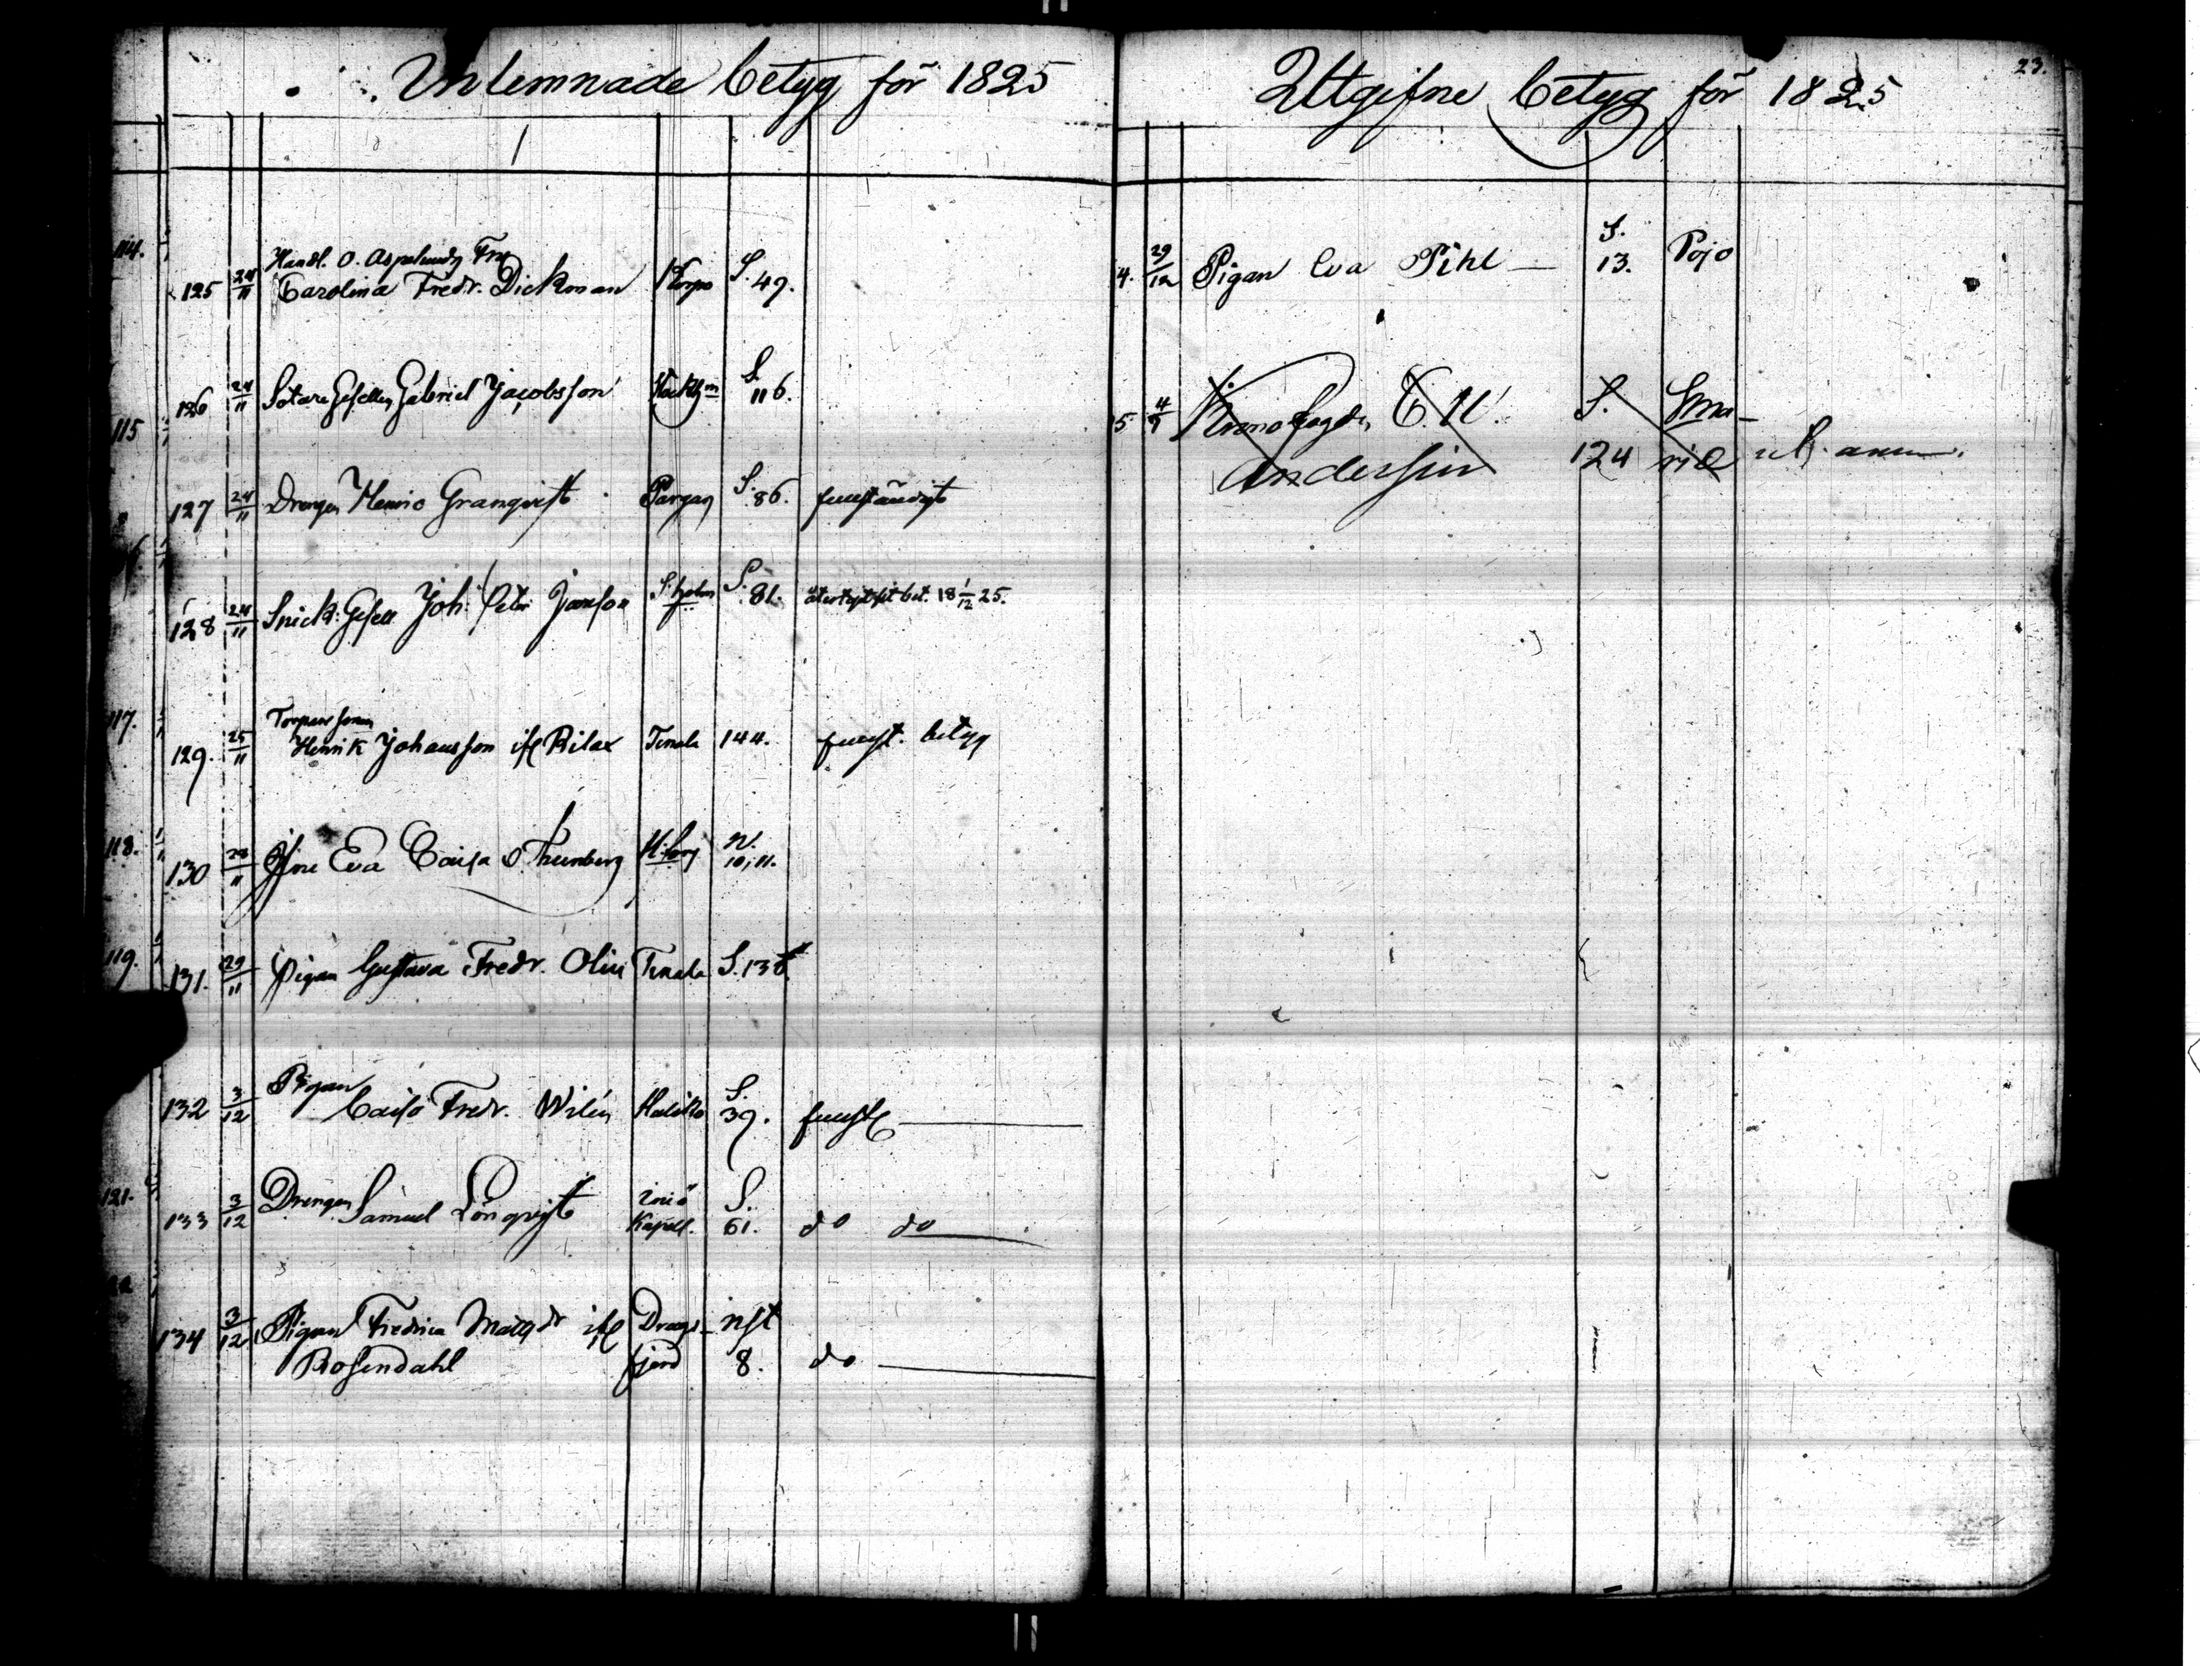 Inlemnade betyg för 1825
114.
125 24/11 Handl. O. Asplunds Fru
Carolina Fredr. Dickman Korpo S. 49.
126 24/11 Sotare Gesellen Gabriel Jacobsson S. 116.
115
127 24/11 Drengen Henric Granqvist Pargas S. 86.
128 24/11 Snick: Gesell Joh: Petr Janson S:holm S. 81. bet. 18 1/12 25.
117.
129. 25/11 Torpare sonen
Henrik Johansson ifr Rilax Tenala 144. betyg
118.
130 28/11 Eva Caisa Thunberg N. 10, 11.
119.
131. 29/11 Pigan Gustava Fredr. Olin Tenala S. 138.
132 3/12 Pigan
Caisa Fredr. Wilén Haliko S. 39.
121.
133 3/12 Drengen Samuel Lönqvist Iniö Kapell. S. 61. do do
134 3/12 Pigan Fredrica Margr ifr Drags-
Rosendahl fjerd 8. do
23.
Utgifne betyg för 1825
4. 29/12 Pigan Eva Pihl — S. 13. Pojo
5 Krono fogden C. U. S. Sma-
Andersin 124 rie